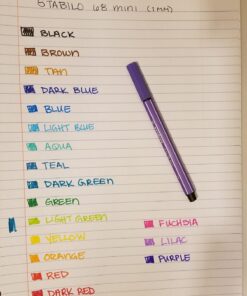 STABILO 68 mini (1MM)
BLACK
BROWN
TAN
DARK BLUE
BLUE
LIGHT BLUE
AQUA
TEAL
DARK GREEN
GREEN
LIGHT GREEN
YELLOW
ORANGE
RED
DARK RED
FUCHSIA
LILAC
PURPLE